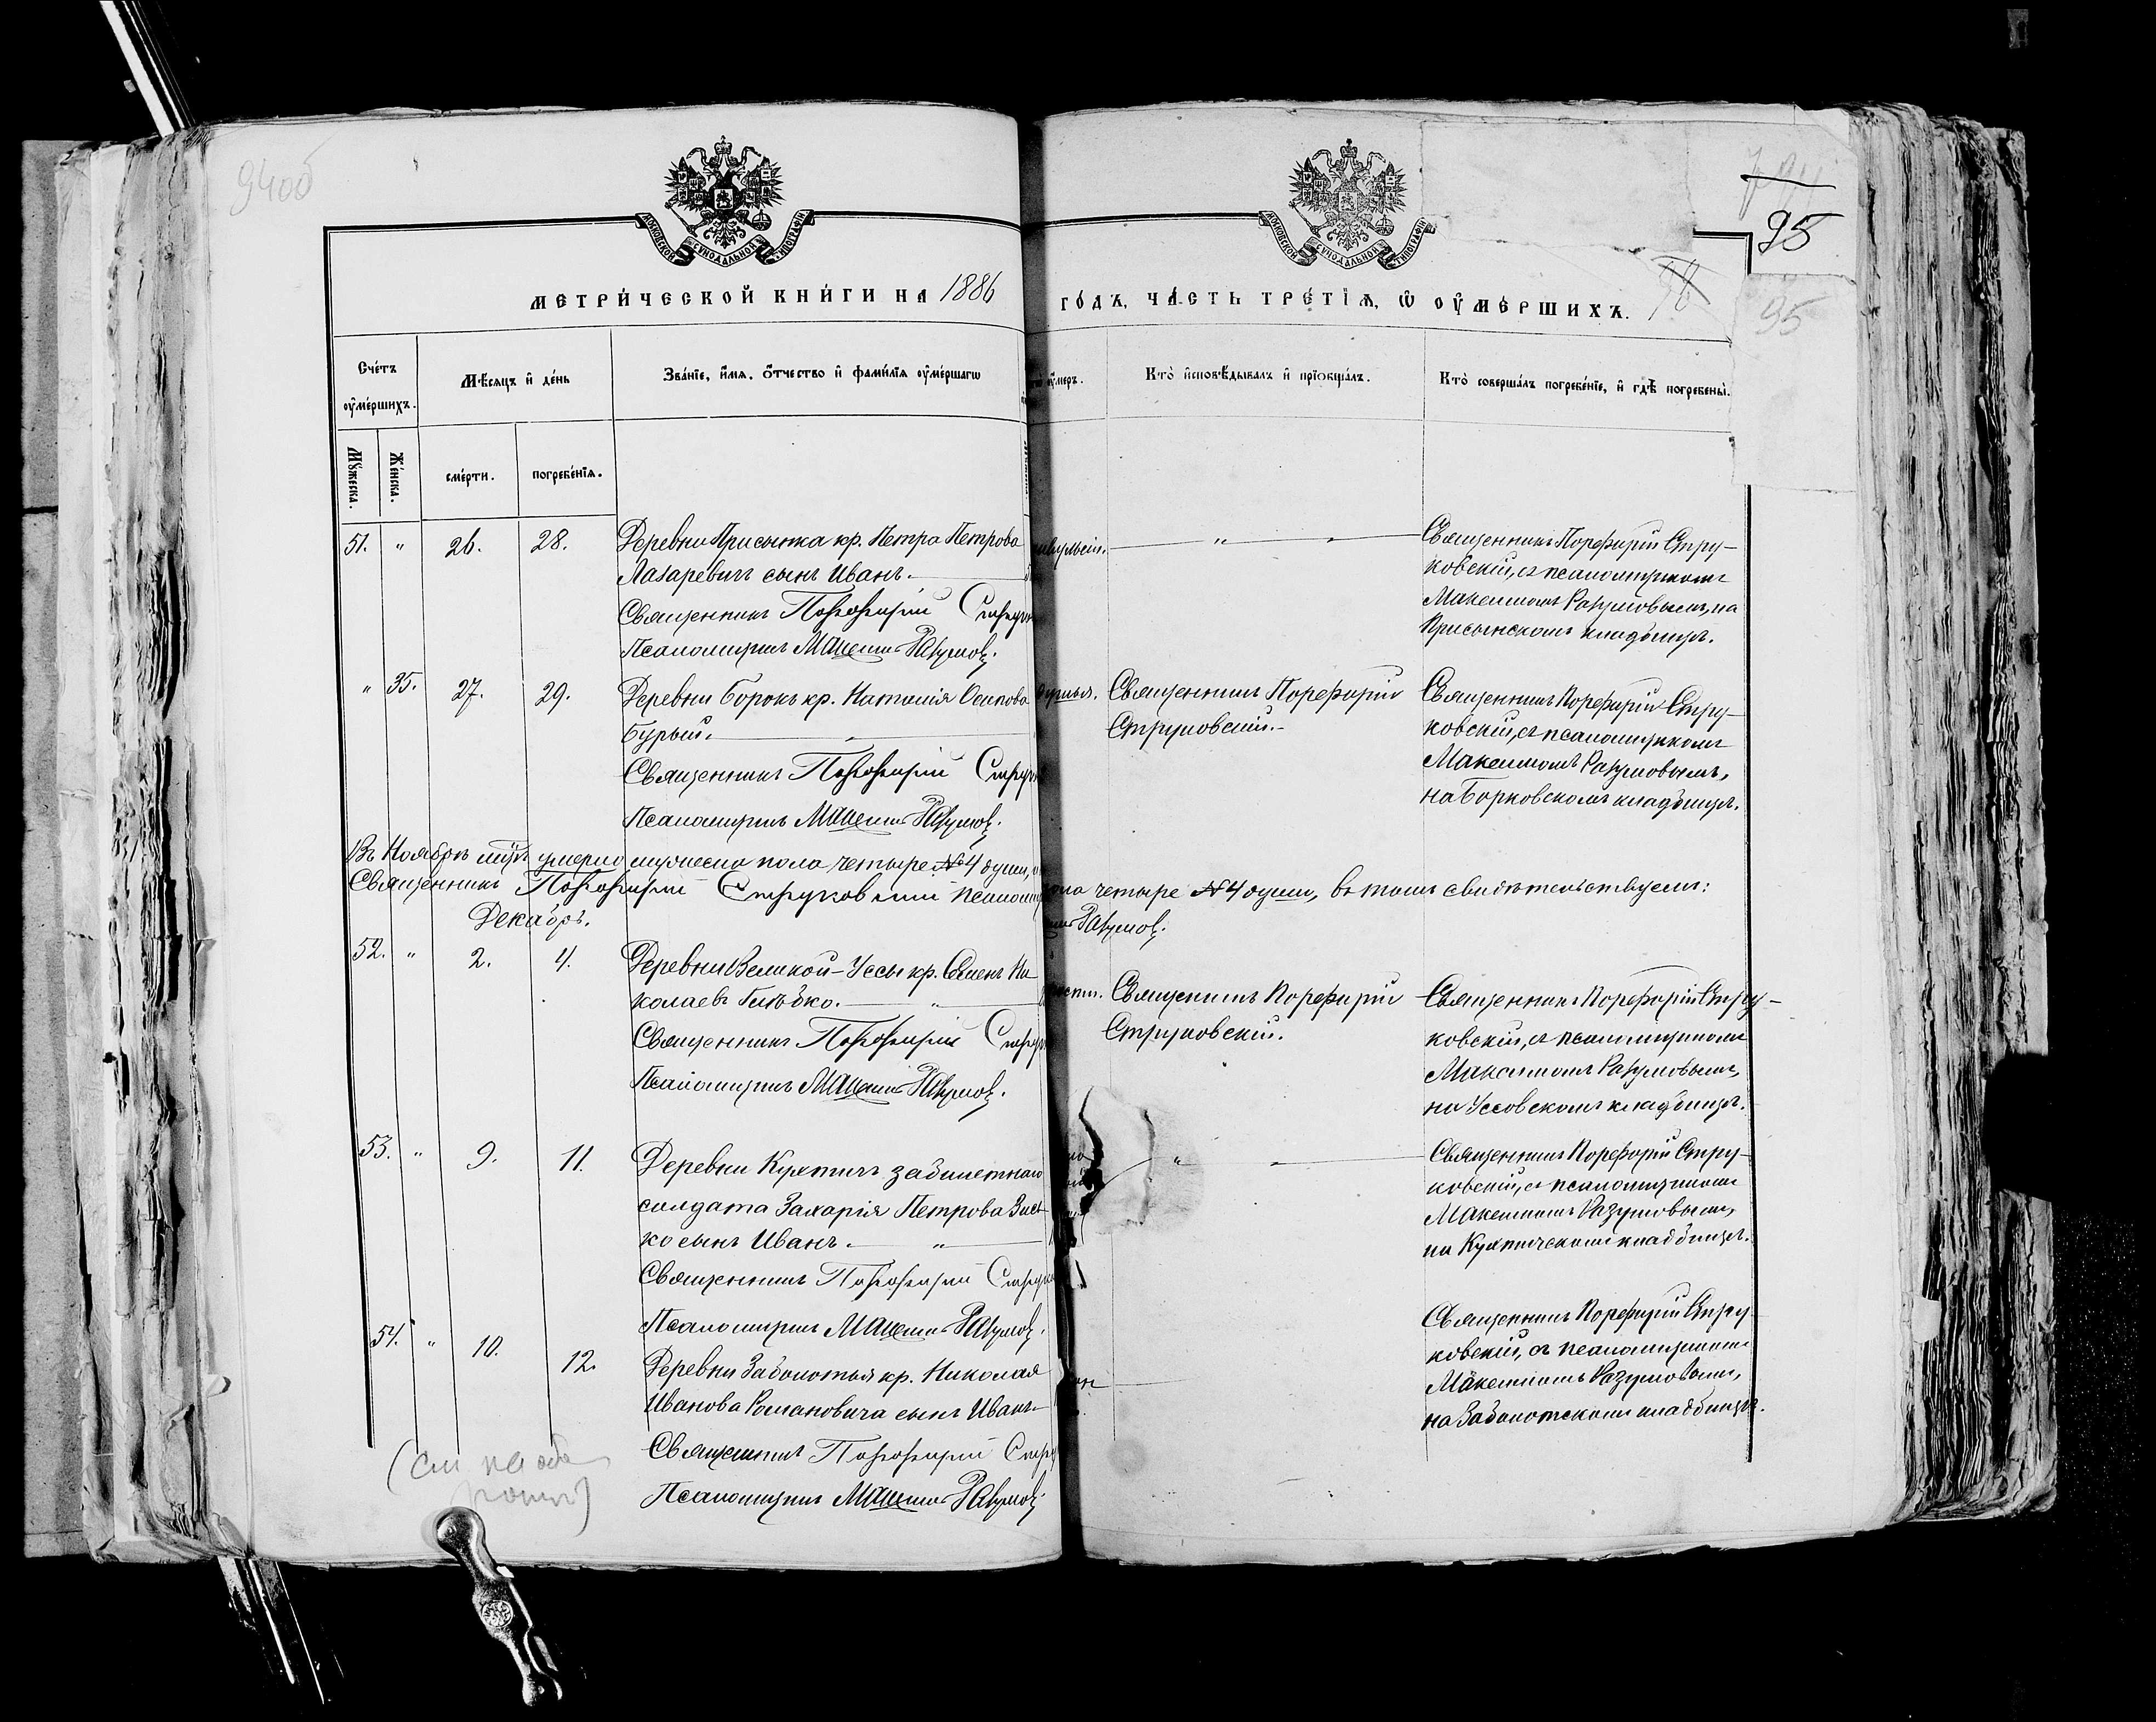 94об
95
95
МОСКОВСКОЙ СУНОДАЛЬНОЙ ТИПОГРАФІИ
МОСКОВСКОЙ СУНОДАЛЬНОЙ ТИПОГРАФІИ
МЕТРИ́ЧЕСКОЙ КНИ́ГИ НА 1886 ГО́ДЪ, ЧА́СТЬ ТРЕ́ТІѦ, Ѡ ОУ҆МЕ́РШИХЪ.
Сче́тъ оу҆ме́ршихъ.
Мѣ́сяцъ и҆ де́нь
Зва́нїе, и҆́мя, ѻ҆́тчество и҆ фами́лїя оу҆ме́ршагѡ
оу҆́меръ.
Кто̀ и҆сповѣ́дывалъ и҆ прїобща́лъ.
Кто̀ соверша́лъ погребе́нїе, и҆ гдѣ̀ погребены̀.
Му́жеска.
Же́нска.
сме́рти.
погребе́нїя.
51. " 26. 28. Деревни Присынка кр. Петра Петрова
Лазаревич сынъ Иванъ.
Священникъ Порфирій
Псаломщикъ Максимъ Разумов.
Священникъ Порфирій Стру-
ковскій, съ псаломщикомъ
Максимомъ Разумовымъ, на
Присынскомъ кладбищѣ.
" 35. 27. 29. Деревни Борокъ кр. Наталія Осипова
Бурый.
Священникъ Порфирій
Псаломщикъ Максимъ Разумов.
Священникъ Порфирій
Струковскій.
Священникъ Порфирій Стру-
ковскій, съ псаломщикомъ
Максимомъ Разумовымъ,
на Борковскомъ кладбищѣ.
Въ Ноябрѣ мцѣ умерло мужеска пола четыре №4 души,
пола четыре №4 души, въ томъ свидѣтельствуемъ:
Священникъ Порфирій Струковскій
Разумов.
Декабрь.
52. " 2. 4. Деревни Великой-Уссы кр. Семенъ Ни-
колаевъ
Священникъ Порфирій
Псаломщикъ Максимъ Разумов.
Священникъ Порфирій
Струковскій.
Священникъ Порфирій Стру-
ковскій, съ псаломщикомъ
Максимомъ Разумовымъ,
на Уссовскомъ кладбищѣ.
53. " 9. 11. Деревни Кухтичъ забилетнаго
солдата Захарія Петрова
ко сынъ Иванъ.
Священникъ Порфирій
Псаломщикъ Максимъ Разумов.
Священникъ Порфирій Стру-
ковскій, съ псаломщикомъ
Максимомъ Разумовымъ,
на Кухтическомъ кладбищѣ.
54. " 10. 12. Деревни Заболотья кр. Николая
Иванова Романовича сынъ Иванъ.
Священникъ Порфирій
Псаломщикъ Максимъ Разумов.
Священникъ Порфирій Стру-
ковскій, съ псаломщикомъ
Максимомъ Разумовымъ,
на Заболотскомъ кладбищѣ.